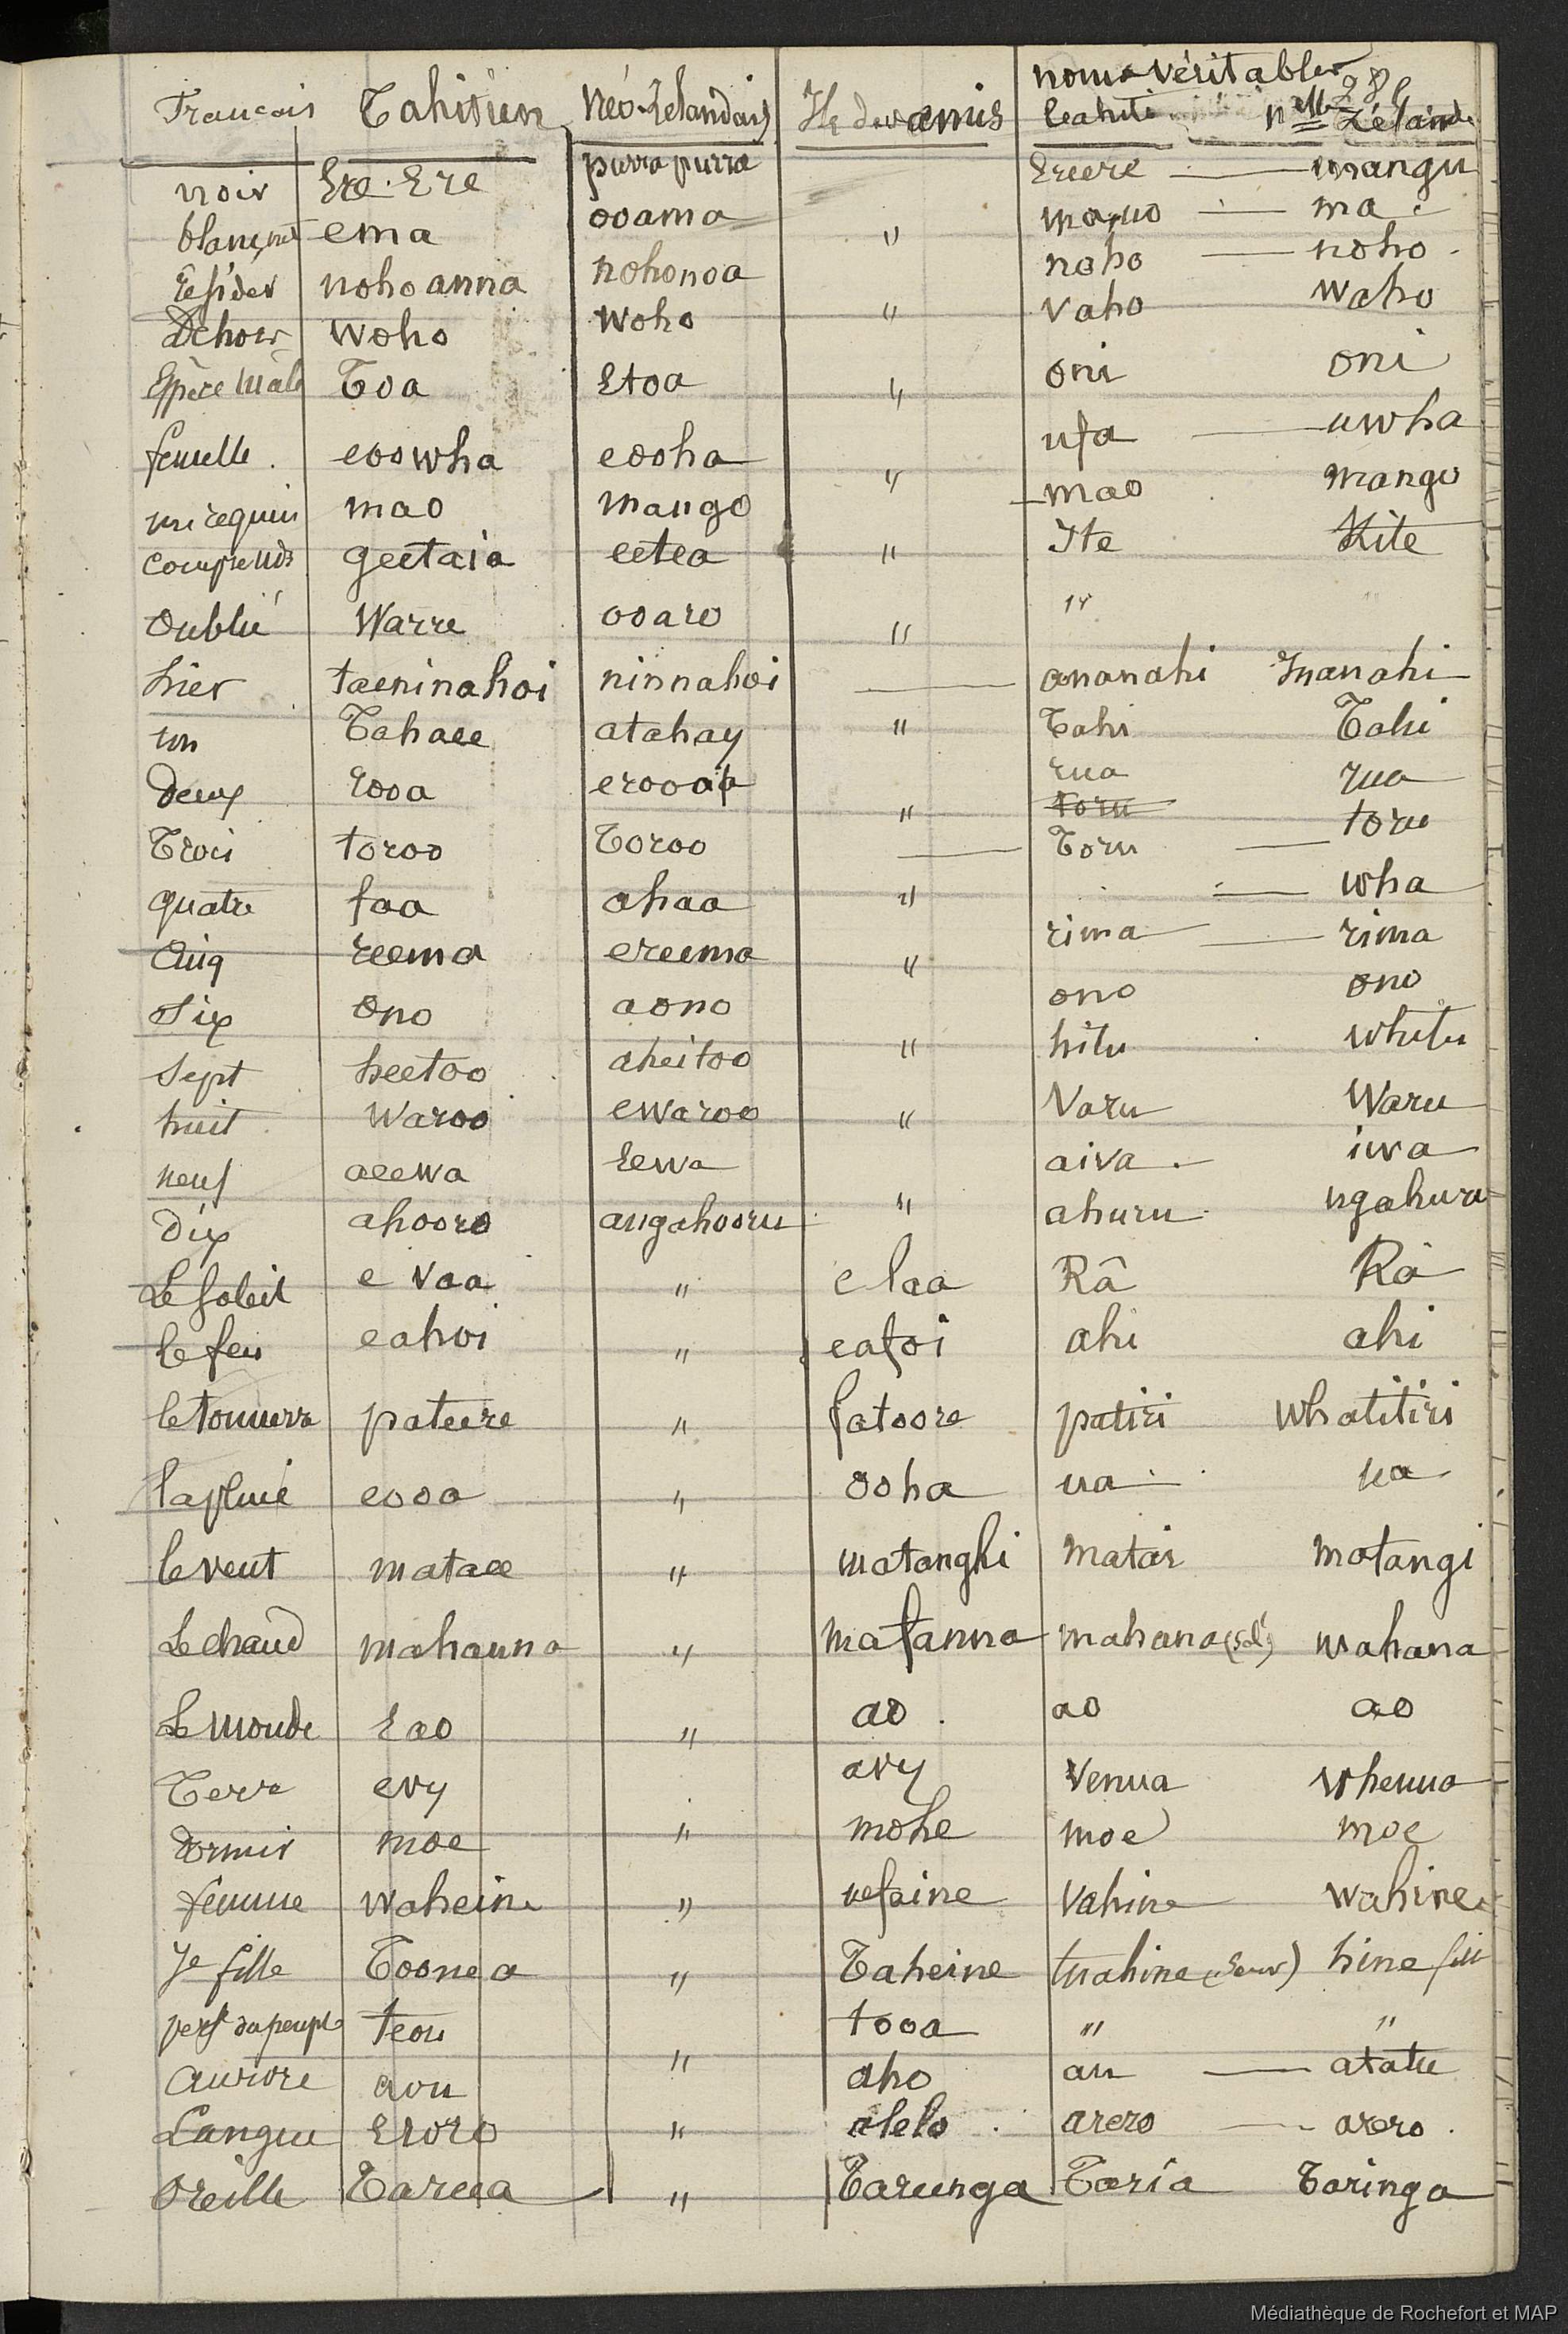 noms véritables
Français Tahitien Néo-Zélandais Ile des amis Tahiti nlle Zélande
noir Ere-Ere purra purra Ereere — mangu
ema ooama " — ma
résider noho anna nohonoa noho — noho
dehors woho woho " vaho waho
Espèce mâle Toa Etoa " oni oni
femelle eoowha eooha " ufa — uwha
un requin mao mango mao mango
comprends geetaia eetea " Ite Kite
oublié Warre ooaro " " "
hier taeninahoi ninnahoi — ananahi Inanahi
un Tahaee atahay " Tahi Tahi
deux Rooa " rua rua
toru
Trois toroo Toroo — Toru — toru
quatre faa ahaa " — wha
Cinq reema ereema " rima — rima
Six Ono aono ono ono
Sept heetoo aheitoo " hitu whitu
huit Waroo ewaroo " Varu Waru
neuf aeewa Eewa aiva iwa
Dix ahooro angahooru " ahuru ngahuru
Le soleil e Vaa " elaa Râ Râ
le feu eahoi " eafoi ahi ahi
le tonnerre pateere " fatoore patiri Whatitiri
la pluie eooa " ooha ua ua
le vent mataee " matanghi matai matangi
Le chaud mahanna " mafanna mahana (sol) mahana
Le monde Eao " ao ao ao
Terre evy avy Venua whenua
dormir moe " mohe moe moe
femme waheine " vefaine Vahine wahine
Je fille Toonea " Taheine tuahine (Sœur) hine fille
pers du peuple teou tooa " "
aurore aou " aho au — atatu
Langue Eroro " alelo arero — arero
Oreille Tareea " Tarunga Taria Taringa
Médiathèque de Rochefort et MAP